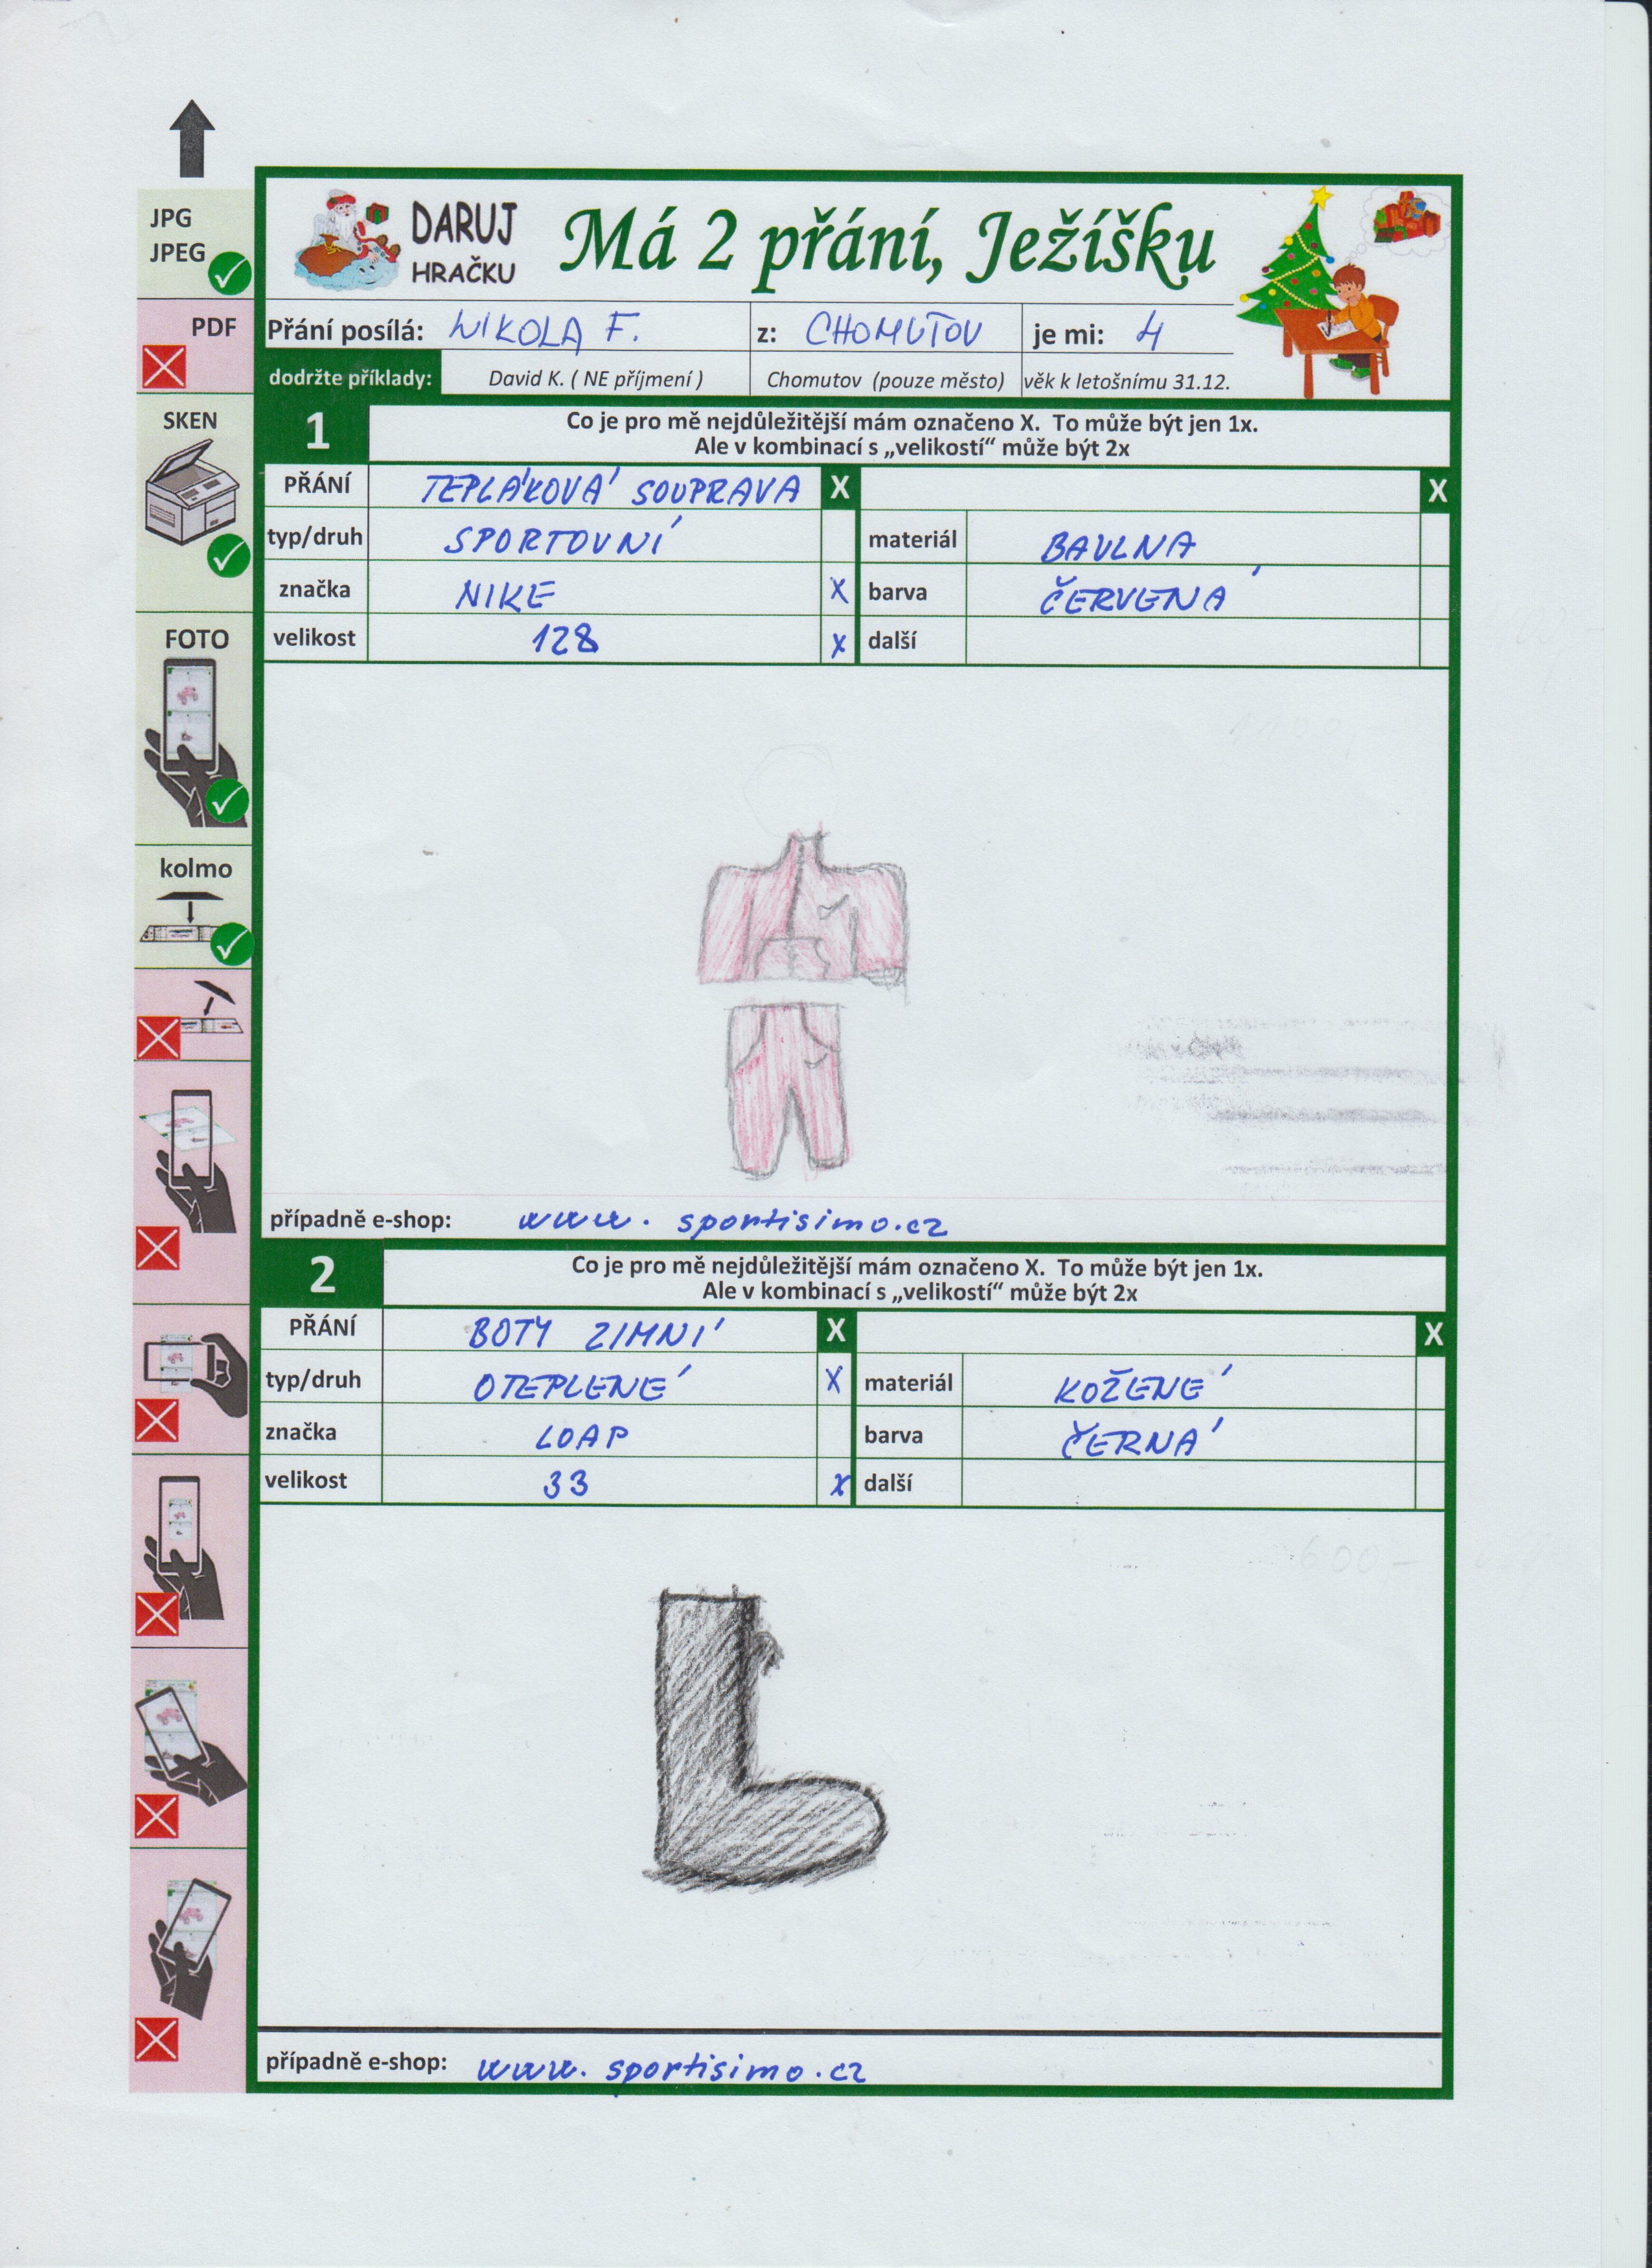 JPG
JPEG
PDF
SKEN
FOTO
kolmo
DARUJ
HRAČKU
Má 2 přání, Ježíšku
Přání posílá: NIKOLA F. z: CHOMUTOV je mi: 4
dodržte příklady: David K. ( NE příjmení ) Chomutov (pouze město) věk k letošnímu 31.12.
1 Co je pro mě nejdůležitější mám označeno X. To může být jen 1x.
Ale v kombinací s „velikostí“ může být 2x
PŘÁNÍ TEPLÁKOVÁ SOUPRAVA X X
typ/druh SPORTOVNÍ materiál BAVLNA
značka NIKE X barva ČERVENÁ
velikost 128 X další
1100,-
případně e-shop: www.sportisimo.cz
2 Co je pro mě nejdůležitější mám označeno X. To může být jen 1x.
Ale v kombinací s „velikostí“ může být 2x
PŘÁNÍ BOTY ZIMNÍ X X
typ/druh OTEPLENÉ X materiál KOŽENÉ
značka LOAP barva ČERNÁ
velikost 33 X další
600,-
případně e-shop: www.sportisimo.cz